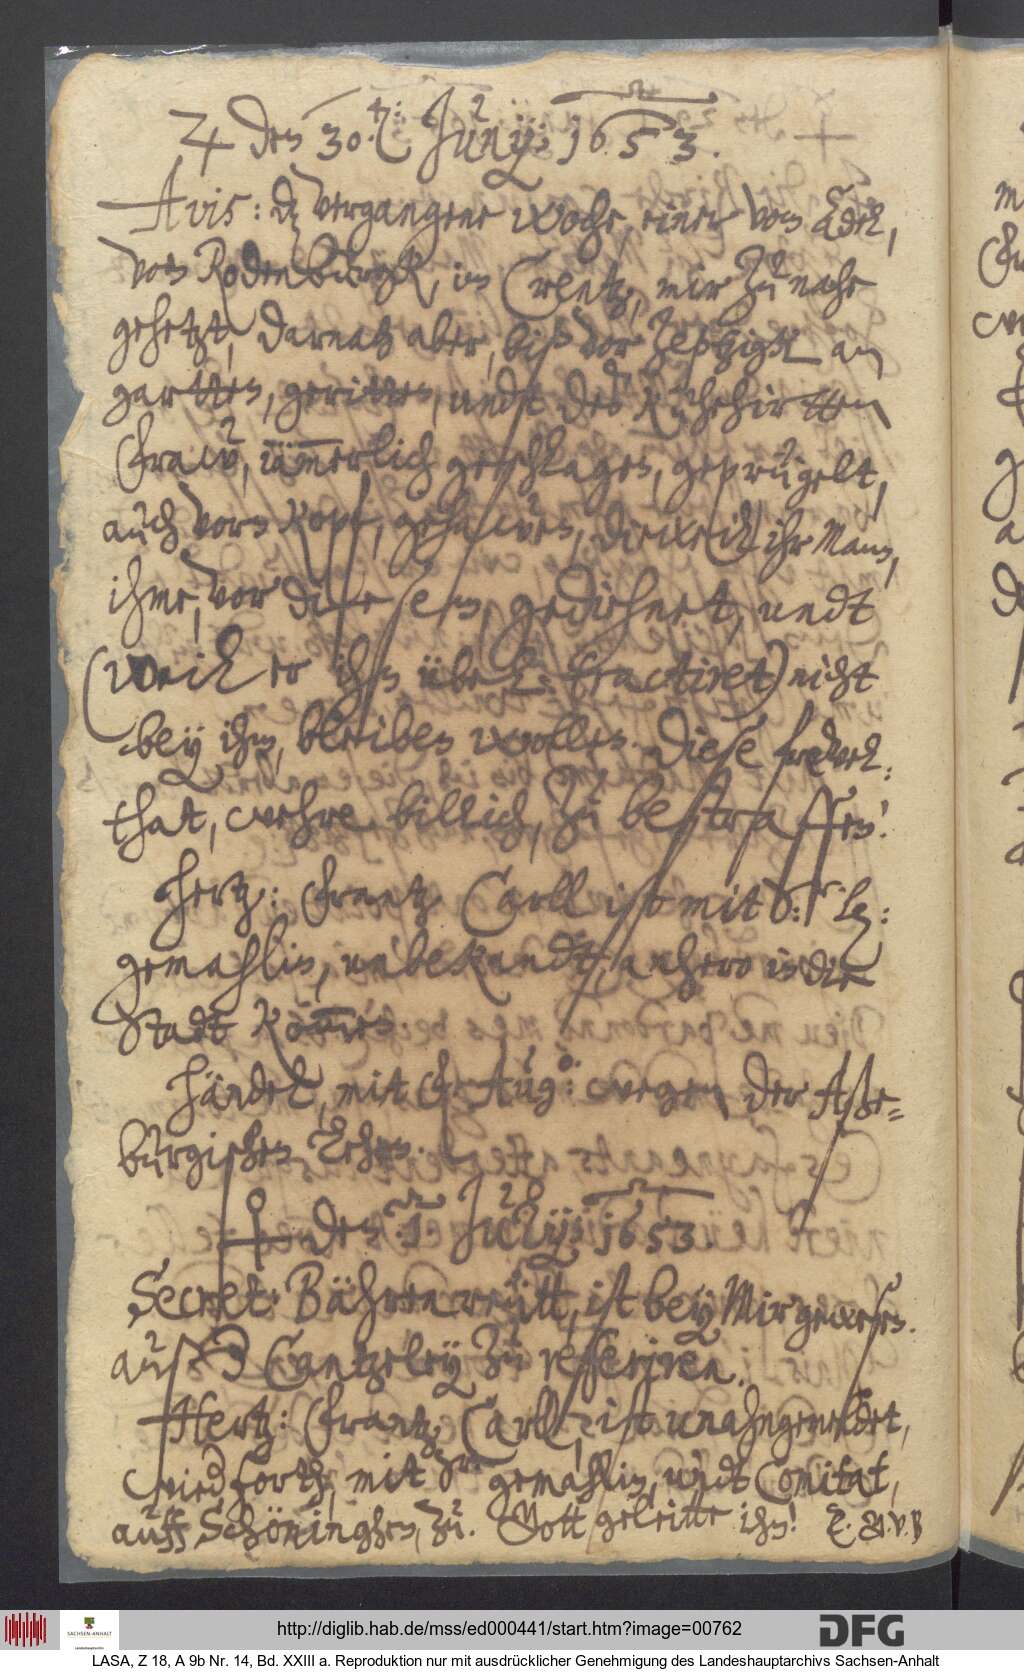 ♃ den 30.t: Junÿ: 1653.
Avis: dz vergangene woche, einer vom Adel,
von Rodenburgk, im Creutz, mir zu nahe
gehetzt, darnach aber, biß vor Zeptzigk an
gartten, geritten, undt des Kuhehirtten
fraw, iämerlich geschlagen, geprügelt,
auch vorn Kopf, gehawen, dieweil ihr Mann,
ihme, vor diesem, gedienet, undt
(weil er ihn übel: tractiret) nicht
bey ihm, bleiben wollen. Diese frevel:
that, wehre billich, zu bestraffen!
Hertz: Frantz Carll ist mit der
gemahlin, unbekandt, anhero in die
Stadt kommen
Händel, mit Fr: Aug: wegen der Aße-
burgischen Lehen.
den 1. Julÿ: 1653.
Secret: Bährenreütt, ist bey Mir gewesen.
auß der Cantzeley zu referiren.
Hertz: Frantz Carll, ist unahngemeldet,
wied forth, mit der gemahlin, undt Comitat,
auff Schöninghen, zu. Gott geleitte ihn!
http://diglib.hab.de/mss/ed000441/start.htm?image=00762
DFG
SACHSEN-ANHALT
Landeshauptarchiv
LASA, Z 18, A 9b Nr. 14, Bd. XXIII a. Reproduktion nur mit ausdrücklicher Genehmigung des Landeshauptarchivs Sachsen-Anhalt